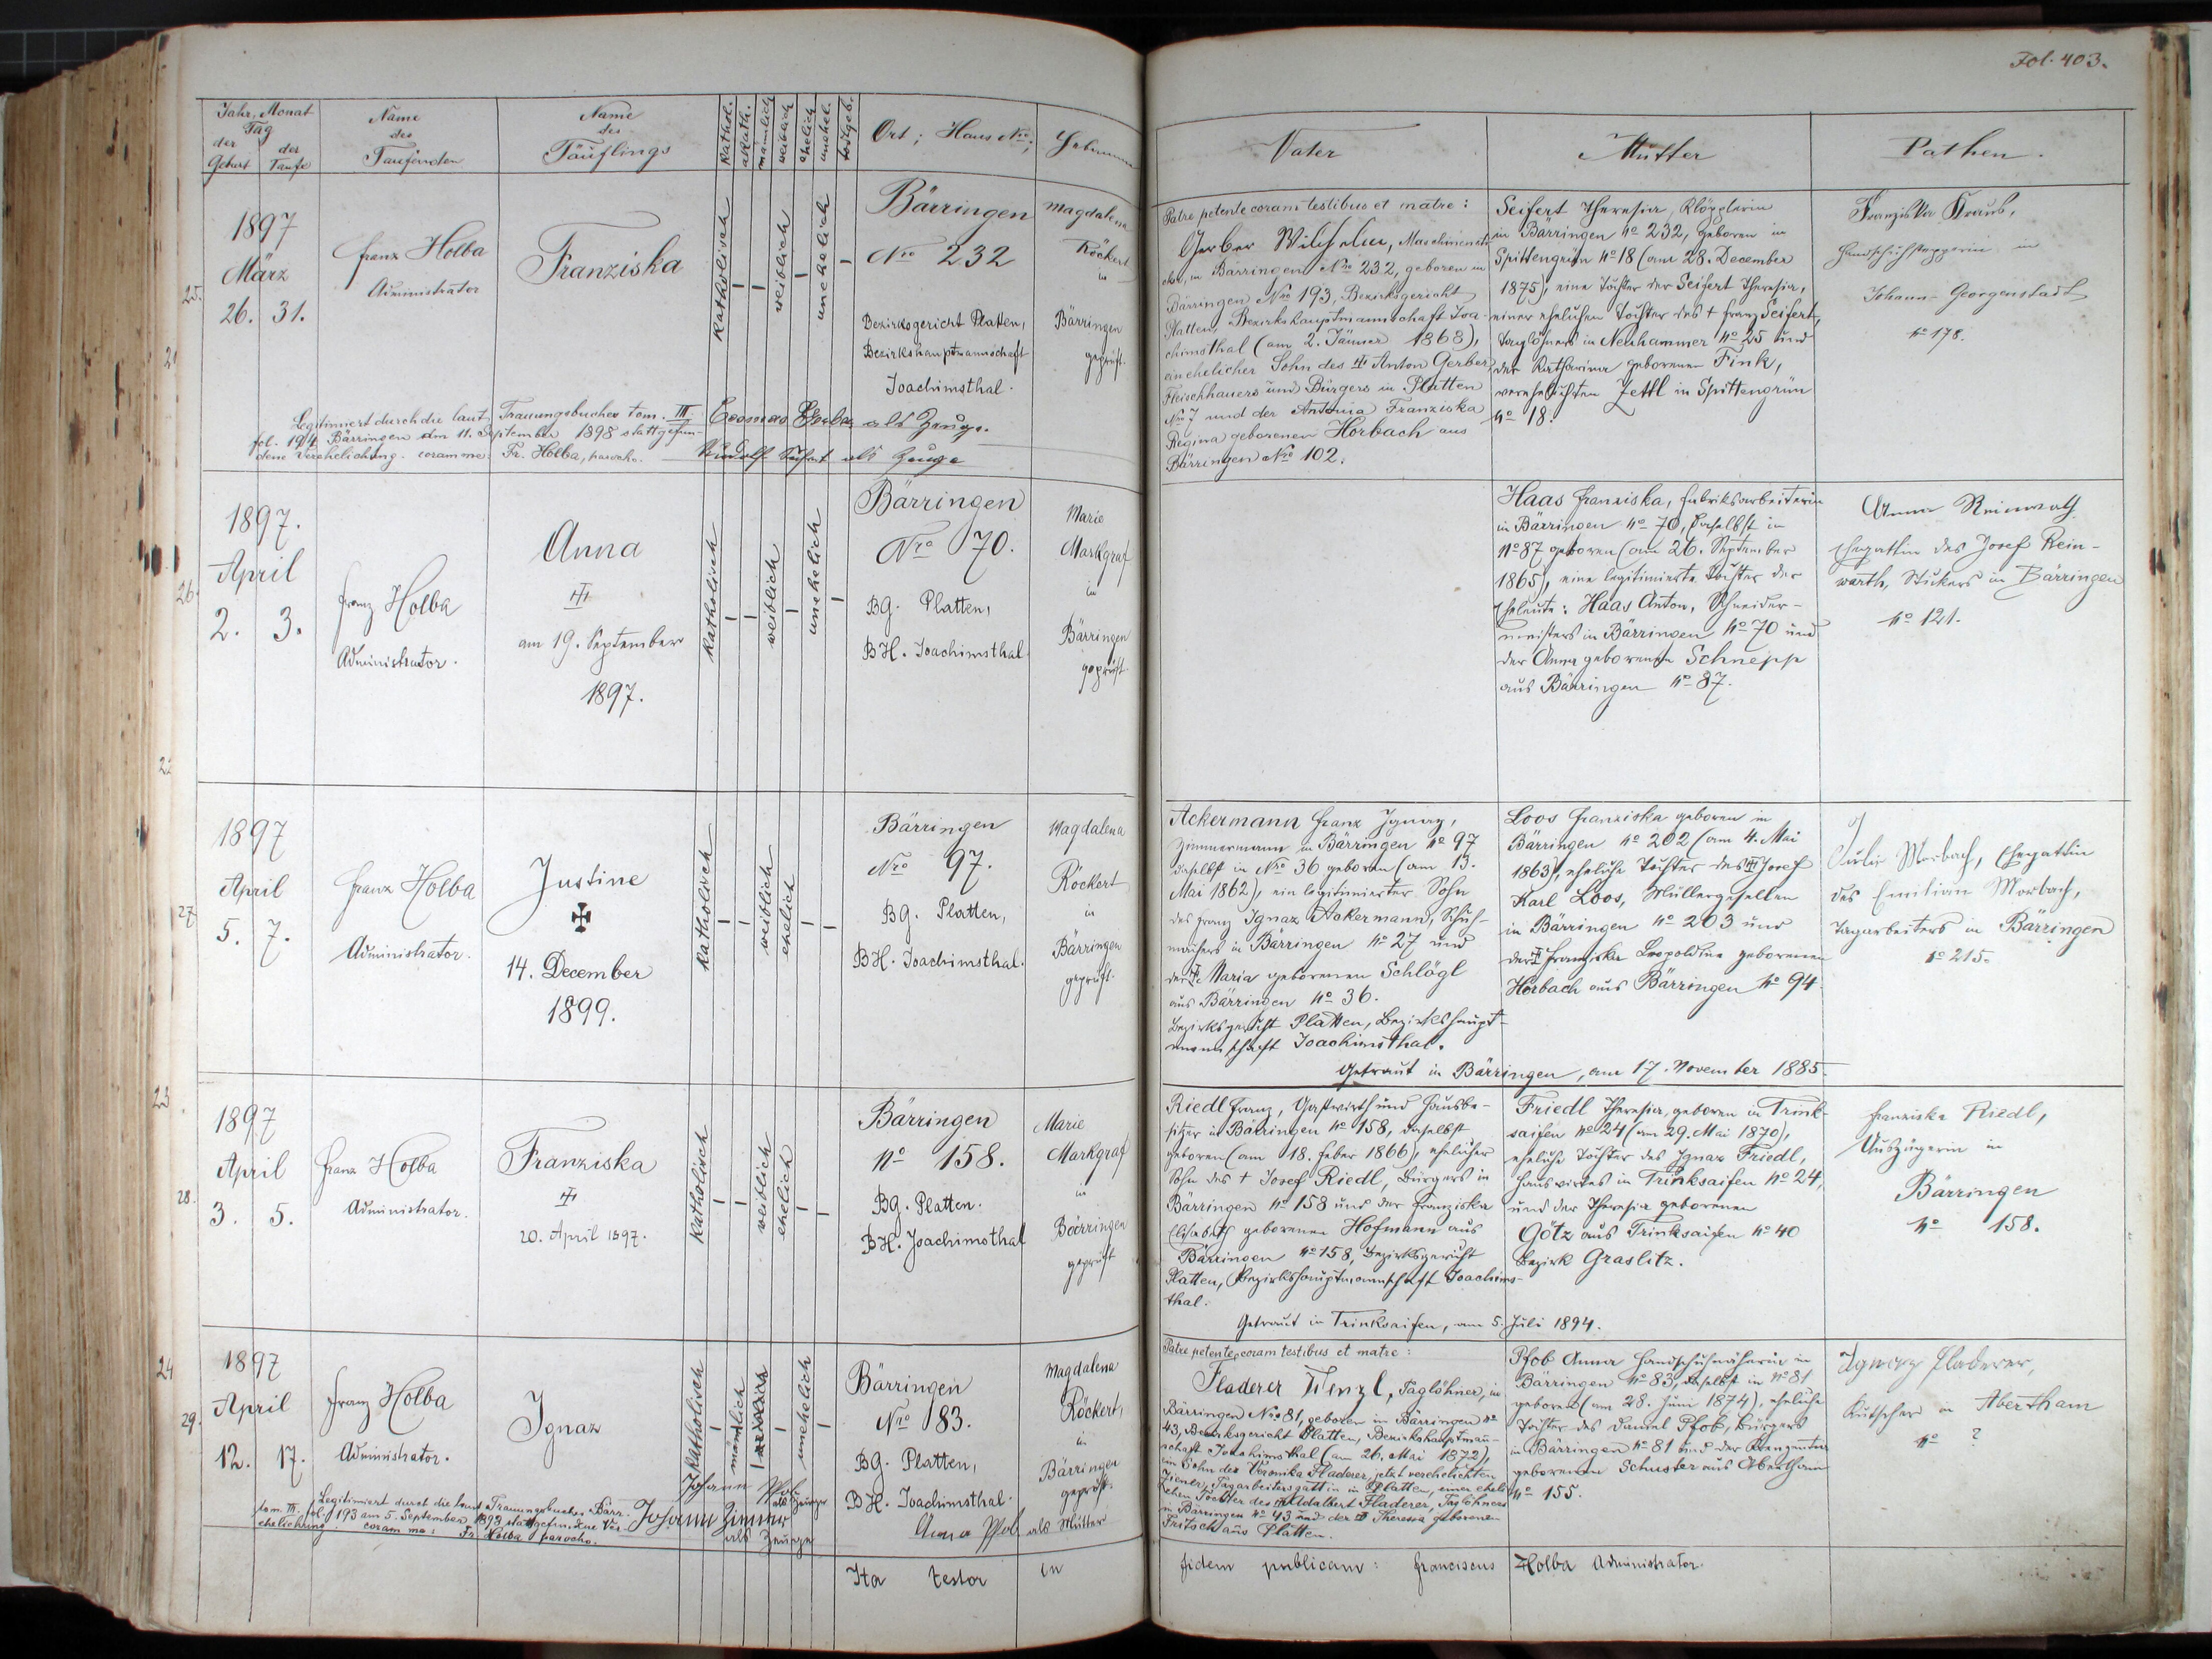 Fol. 403.
Jahr, Monat
Tag
der Geburt
der Taufe
Name
des
Taufenden
Name
des
Täuflings
Kathol.
akath.
männlich
weiblich
ehelich
unehel.
todtgeb.
Ort; Haus Nro;
Vater
Mutter
Pathen.
25.
1897
März
26. 31.
Franz Holba
Administrator
Franziska
Katholisch
weiblich
unehelich
Bärringen
Nro 232
Bezirksgericht Platten,
Bezirkshauptmannschaft
Joachimsthal.
Magdalena
Röckert
in
Bärringen
geprüft.
Legitimiert durch die laut Trauungsbuches tom. III.
fol. 194 Bärringen am 11. September 1898 stattgefun-
dene Verehelichung. coram me: Fr. Holba, parocho.
Gerber als Zeuge.
Rudolf Seifert als Zeuge
Patre petente coram testibus et matre:
Gerber Wilhelm,
in Bärringen Nro 232, geboren in
Bärringen Nro 193, Bezirksgericht
Platten, Bezirkshauptmannschaft Joa-
chimsthal (am 2. Jänner 1868),
ein ehelicher Sohn des Anton Gerber,
Fleischhauers und Bürgers in Platten
No 7 und der Antonia Franziska
Regina geborenen Horbach aus
Bärringen Nro 102.
Seifert Theresia, Klöpplerin
in Bärringen No 232, geboren in
Spittengrün No 18 (am 28. December
1875), eine Tochter der Seifert Theresia,
einer ehelichen Tochter des † Franz Seifert,
Taglöhners in Neuhammer No 25 und
der Katharina geborenen Fink,
verehelichten Zettl in Spittengrün
No 18.
Franziska Kraus,
in
Johann-Georgenstadt
No 178.
26.
1897.
April
2. 3.
Franz Holba
Administrator.
Anna
am 19. September
1897.
Katholisch
weiblich
unehelich
Bärringen
Nro 70.
BG. Platten,
BH. Joachimsthal
Marie
Markgraf
in
Bärringen
geprüft.
Haas Franziska, Fabriksarbeiterin
in Bärringen No 70, daselbst in
No 87 geboren (am 26. September
1865), eine legitimierte Tochter der
Eheleute: Haas Anton, Schneider-
meisters in Bärringen No 70 und
der Anna geborenen Schnepp
aus Bärringen No 87.
Anna Reinwarth
Ehegattin des Josef Rein-
warth, Stickers in Bärringen
No 121.
27.
1897
April
5. 7.
Franz Holba
Administrator.
Justine
14. December
1899.
Katholisch
weiblich
ehelich
Bärringen
Nro 97.
BG. Platten,
BH. Joachimsthal.
Magdalena
Röckert
in
Bärringen
geprüft.
Ackermann Franz Ignaz,
Zimmermann in Bärringen No 97
daselbst in Nro 36 geboren (am 13.
Mai 1862), ein legitimierter Sohn
des Franz Ignaz Ackermann, Schuh-
machers in Bärringen No 27 und
der Maria geborenen Schlögl
aus Bärringen No 36.
Bezirksgericht Platten, Bezirkshaupt-
mannschaft Joachimsthal.
Loos Franziska geboren in
Bärringen No 202 (am 4. Mai
1863), eheliche Tochter des Josef
Karl Loos, Müllergesellen
in Bärringen No 203 und
der Franziska Leopoldine geborenen
Horbach aus Bärringen No 94.
Getraut in Bärringen, am 17. November 1885.
Julie Morbach, Ehegattin
des Emilian Morbach,
Tagarbeiters in Bärringen
No 215.
28.
1897
April
3. 5.
Franz Holba
Administrator.
Franziska
20. April 1897.
Katholisch
weiblich
ehelich
Bärringen
No 158.
BG. Platten.
BH. Joachimsthal
Marie
Markgraf
in
Bärringen
geprüft
Riedl Franz, Gastwirth und Hausbe-
sitzer in Bärringen No 158, daselbst
geboren (am 18. Feber 1866), ehelicher
Sohn des † Josef Riedl, Bürgers in
Bärringen No 158 und der Franziska
Elisabeth geborenen Hofmann aus
Bärringen No 158, Bezirksgericht
Platten, Bezirkshauptmannschaft Joachims-
thal.
Friedl Theresia, geboren in Trink-
saifen No 24 (am 29. Mai 1870),
eheliche Tochter des Ignaz Friedl,
Hauswirtes in Trinksaifen No 24,
und der Theresia geborenen
Götz aus Trinksaifen No 40
Bezirk Graslitz.
Getraut in Trinksaifen, am 5. Juli 1894.
Franziska Riedl,
Auszüglerin in
Bärringen
No 158.
29.
1897
April
12. 17.
Franz Holba
Administrator.
Ignaz
Katholisch
männlich
unehelich
Bärringen
Nro 83.
BG. Platten,
BH. Joachimsthal.
Magdalena
Röckert,
in
Bärringen
geprüft.
Legitimiert durch die laut Trauungsbuches Bärr.
tom. III. fol. 193 am 5. September 1898 stattgefundene Ver-
ehelichung. coram me: Fr. Holba, parocho.
Johann Pfob
als Zeuge
Johann Zimmer
als Zeuge
Anna Pfob als Mutter
Patre petente coram testibus et matre:
Fladerer Wenzl, Taglöhner, in
Bärringen Nro 81, geboren in Bärringen No
43, Bezirksgericht Platten, Bezirkshauptmann-
schaft Joachimsthal (am 26. Mai 1872),
ein Sohn der Veronika Fladerer, jetzt verehelichten
Tagarbeitersgattin in Platten, einer eheli-
chen Tochter des Adalbert Fladerer, Taglöhners
in Bärringen No 43 und der Theresia geborenen
Fritsch aus Platten.
Pfob Anna Handschuhnäherin in
Bärringen No 83, daselbst in No 81
geboren (am 28. Juni 1874), eheliche
Tochter des Daniel Pfob, Bürgers
in Bärringen No 81 und der Kreszentia
geborenen Schuster aus Abertham
No 155.
Ignaz Fladerer,
Kutscher in Abertham
No ?
Ita testor in fidem publicam: Franciscus Holba Administrator.
21
22
23
24